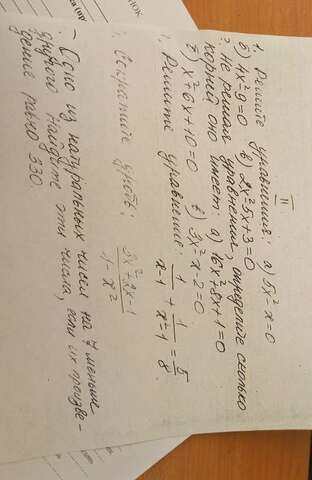 II
1. Решите уравнения: а) 5x²-x=0
б) 4x²-9=0 в) 2x²-5x+3=0
? Не решая уравнения, определите сколько
корней оно имеет: а) 16x²+8x+1=0
б) x²+6x+10=0 в) 3x²-x-2=0
Решите уравнение: 1/(x-1) + 1/(x²-1) = 5/8
Сократите дробь: (3x²+2x-1)/(1-x²)
- Одно из натуральных чисел на 7 меньше
другого. Найдите эти числа, если их произве-
дение равно 330.